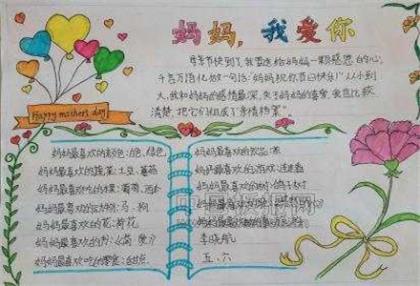 妈妈，我爱你
母亲节快到了，我要送给妈妈一颗感恩的心，
千言万语化做一句话：“妈妈祝你节日快乐！”从小到
大，我和妈妈的感情最深，关于妈妈的喜爱，我也比较
清楚，把它们组成了“亲情档案”
Happy mothers day
妈妈最喜欢的颜色：白色、绿色
妈妈最喜欢的蔬菜：土豆、蕃茄
妈妈最喜欢吃的水果：葡萄、西
妈妈最喜欢的动物：马、狗
妈妈最喜欢的花：荷花
妈妈最喜欢的书：《简·爱》
妈妈最喜欢吃的零食：
妈妈最喜欢的饮品：茶
妈妈最喜欢的游戏：连连看
妈妈最喜欢的树：鸽子树
妈妈最喜欢
妈妈最喜欢做的事
李晓航
五、六